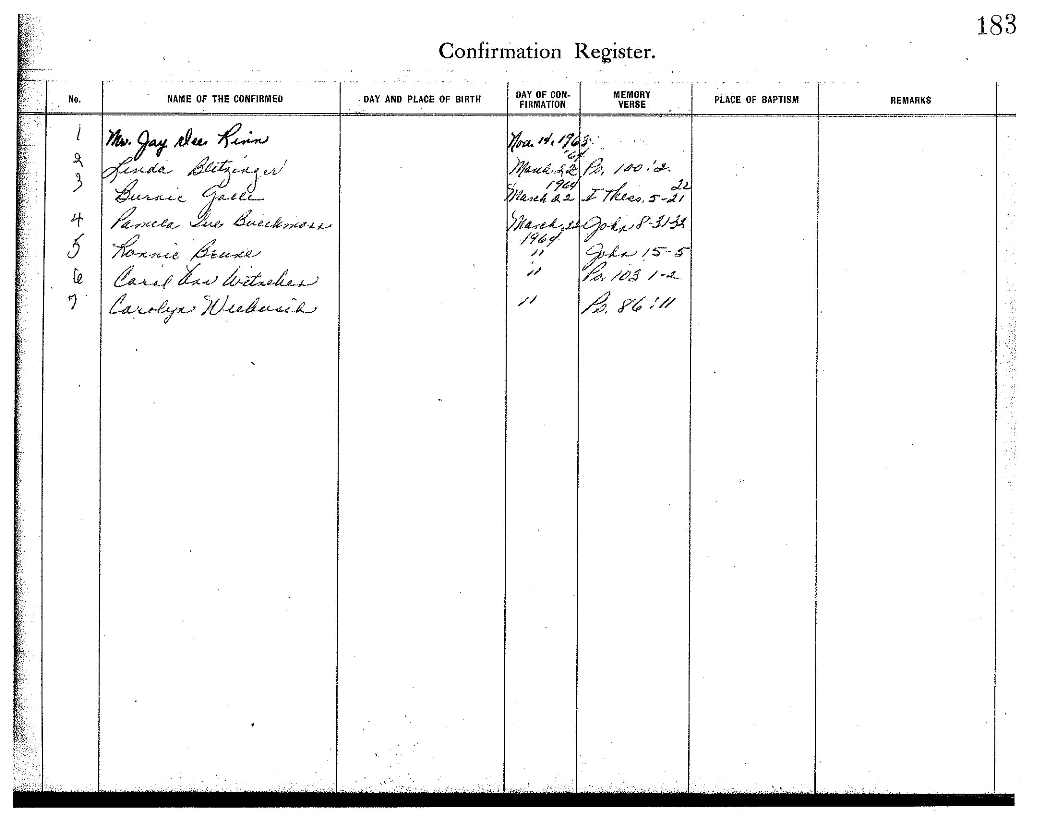 183
Confirmation Register.
No. NAME OF THE CONFIRMED DAY AND PLACE OF BIRTH DAY OF CON- FIRMATION MEMORY VERSE PLACE OF BAPTISM REMARKS
1 Mr. Jay Dee Rinn Nov. 14, 1963
2 Linda Blitzinger March 22 '64 Ps. 100:2
3 Burnie March 22 1964 I Thess. 5-21 22
4 Pamela Sue March 22 1964 John 8-31-32
5 Ronnie " John 15-5
6 Carol Ann " Ps. 103 1-2
7 Carolyn Wiebusch " Ps. 86:11